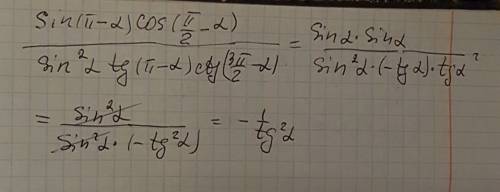 Sin(π-α) cos(π/2-α) / Sin²α tg(π-α) ctg(3π/2-α) = Sinα·Sinα / Sin²α·(-tgα)·tgα =
= Sin²α / Sin²α·(-tg²α) = -1/tg²α